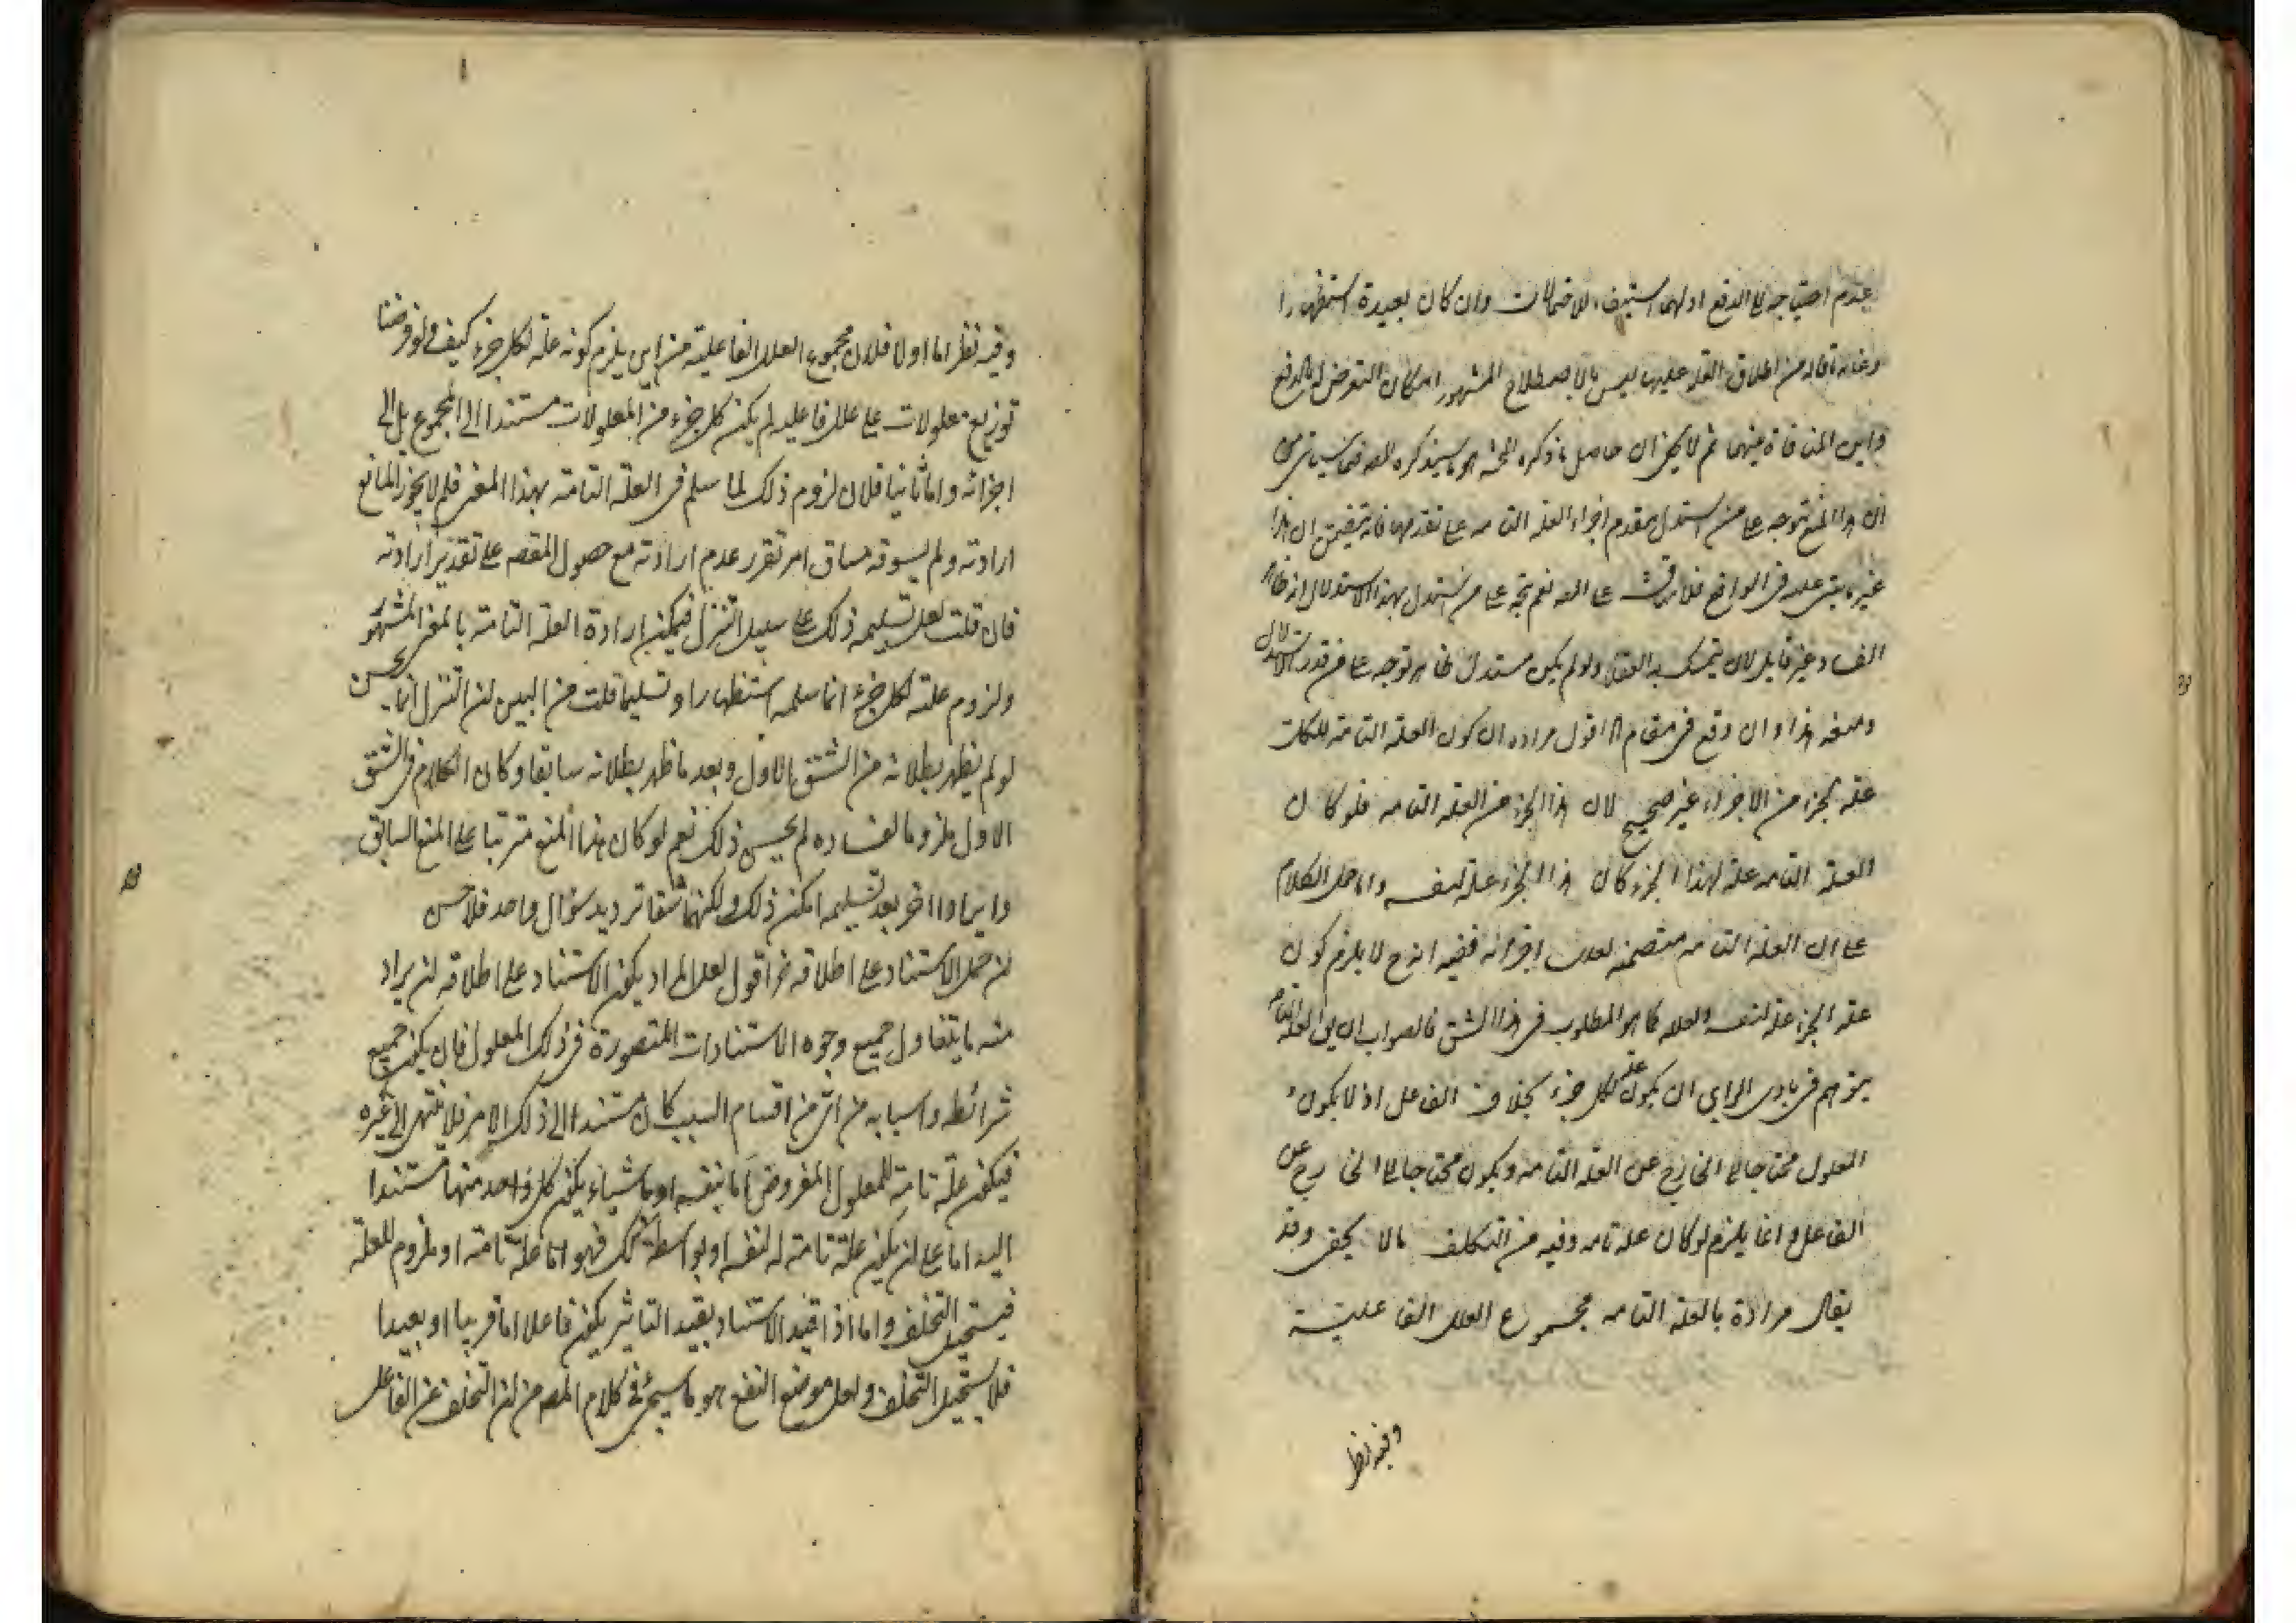 عدم احتياجه الى الدفع اولهما استيفاء للاحتمالات وان كان بعيدة استظهارا
وغاية ما قاله من اطلاق العلة عليها ليس بالاصطلاح المشهور امكان التعرض له بالدفع
واين المنافاة بينهما ثم لا يخفى ان حاصل ما ذكره المحشى هو ما سيذكره المص فيما سياتى من
ان هذا المنع يتوجه على من استدل بتقدم اجزاء العلة التامة على تقدمها فانه يتضمن ان هذا
غير ما يبتنى عليه فى الواقع فلا يناقش على المص نعم يتجه على من يستدل بهذا الاستدلال اذ ظاهر
الفساد غير قابل لان يتمسك به العقلاء ولو لم يكن مستدل ظاهر توجه على من قدر الاستدلال
ومنعه هذا وان وقع فى مقام اقول مراده ان كون العلة التامة للكل
علة لجزء من الاجزاء غير صحيح لان هذا الجزء من العلة التامة فلو كان
العلة التامة علة لهذا الجزء كان هذا الجزء علة لنفسه واما حمل الكلام
على ان العلة التامة متضمنة لعلة اجزائه ففيه انه ح لا يلزم كون
علة الجزء علة لنفسه ولعلله كما هو المطلوب فى هذا الشق فالصواب ان يق العلة التامة
يتوهم فى بادى الراى ان يكون علة لكل جزء بخلاف الفاعل اذ لا يكون
المعلول محتاجا الى الخارج عن العلة التامة ويكون محتاجا الى الخارج عن
الفاعل وانما يلزم لو كان علة تامة وفيه من التكلف ما لا يخفى وقد
يقال مراده بالعلة التامة مجموع العلل الفاعلية
وفيه نظر
وفيه نظر اما اولا فلان مجموع العلل الفاعلية من اين يلزم كونه علة لكل جزء كيف ولو فرضنا
توزيع معلولات على علل فاعلية لم يكن كل جزء من المعلولات مستندا الى المجموع بل الى
اجزائه واما ثانيا فلان لزوم ذلك لما سلم فى العلة التامة بهذا المعنى فلم لا يجوز المانع
ارادته ولم يسوقه مساق امر تقرر عدم ارادته مع حصول المقصد على تقدير ارادته
فان قلت لعل تسليمه ذلك على سبيل التنزل فيمكن ارادة العلة التامة بالمعنى المشهور
ولزوم علته لكل جزء انما سلمه استظهارا وتسليما قلت من البين ان التنزل انما يحسن
لو لم يظهر بطلانه من الشق الاول وبعد ما ظهر بطلانه سابقا وكان الكلام فى الشق
الاول ملزوما لفساده لم يحسن ذلك نعم لو كان هذا المنع مترتبا على المنع السابق
وايرادا اخر بعد تسليمه امكن ذلك ولكنهما شقا ترديد سؤال واحد فلا حسن
ان حمل الاستناد على اطلاقه اقول لعل المراد بكون الاستناد على اطلاقه ان يراد
منه ما يتناول جميع وجوه الاستنادات المتصورة فى ذلك المعلول فان يكون جميع
شرائطه واسبابه من اى من اقسام السبب كان مستندا الى ذلك الامر فلا ينتهى الى غيره
فيكون علة تامة للمعلول المفروض اما بنفسه او باشياء يكون كل واحد منها مستندا
اليه اما على ان يكون علة تامة له لنفسه او بواسطة كك فهو اما علة تامة او ملزوم للعلة
فيستحيل التخلف واما اذا قيد الاستناد بقيد التاثير يكون فاعلا اما قريبا او بعيدا
فلا يستحيل التخلف ولعل موضع النفع هو ما سيجئ فى كلام المص من ان التخلف عن الفاعل